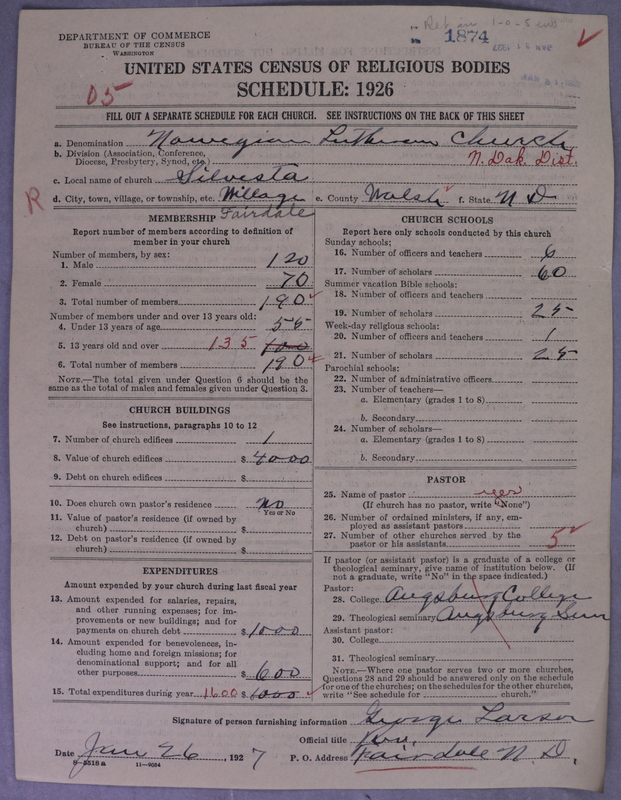 DEPARTMENT OF COMMERCE
BUREAU OF THE CENSUS
WASHINGTON
1874
UNITED STATES CENSUS OF RELIGIOUS BODIES
SCHEDULE: 1926
D5
FILL OUT A SEPARATE SCHEDULE FOR EACH CHURCH. SEE INSTRUCTIONS ON THE BACK OF THIS SHEET
a. Denomination Norwegian Lutheran Church
b. Division (Association, Conference, Diocese, Presbytery, Synod, etc.) N. Dak. Dist.
c. Local name of church Silvesta
d. City, town, village, or township, etc. Village e. County Walsh f. State N D
Fairdale
R
MEMBERSHIP
Report number of members according to definition of member in your church
Number of members, by sex:
1. Male 120
2. Female 70
3. Total number of members 190
Number of members under and over 13 years old:
4. Under 13 years of age 55
5. 13 years old and over 135 100
6. Total number of members 190
NOTE.—The total given under Question 6 should be the same as the total of males and females given under Question 3.
CHURCH BUILDINGS
See instructions, paragraphs 10 to 12
7. Number of church edifices 1
8. Value of church edifices $ 4000
9. Debt on church edifices $
10. Does church own pastor's residence? no
Yes or No
11. Value of pastor's residence (if owned by church) $
12. Debt on pastor's residence (if owned by church) $
EXPENDITURES
Amount expended by your church during last fiscal year
13. Amount expended for salaries, repairs, and other running expenses; for improvements or new buildings; and for payments on church debt $ 1000
14. Amount expended for benevolences, including home and foreign missions; for denominational support; and for all other purposes $ 600
15. Total expenditures during year 1600 $ 1000
CHURCH SCHOOLS
Report here only schools conducted by this church
Sunday schools:
16. Number of officers and teachers 6
17. Number of scholars 60
Summer vacation Bible schools:
18. Number of officers and teachers
19. Number of scholars 25
Week-day religious schools:
20. Number of officers and teachers 1
21. Number of scholars 25
Parochial schools:
22. Number of administrative officers
23. Number of teachers—
a. Elementary (grades 1 to 8)
b. Secondary
24. Number of scholars—
a. Elementary (grades 1 to 8)
b. Secondary
PASTOR
25. Name of pastor yes
(If church has no pastor, write "None")
26. Number of ordained ministers, if any, employed as assistant pastors
27. Number of other churches served by the pastor or his assistants 5
If pastor (or assistant pastor) is a graduate of a college or theological seminary, give name of institution below. (If not a graduate, write "No" in the space indicated.)
Pastor:
28. College Augsburg College
29. Theological seminary Augsburg Sem
Assistant pastor:
30. College
31. Theological seminary
NOTE.—Where one pastor serves two or more churches, Questions 28 and 29 should be answered only on the schedule for one of the churches; on the schedules for the other churches, write "See schedule for ______ church."
Signature of person furnishing information George Larson
Official title
Date Jan 26, 1927 P. O. Address Fairdale N. D.
8-5518a 11-9054